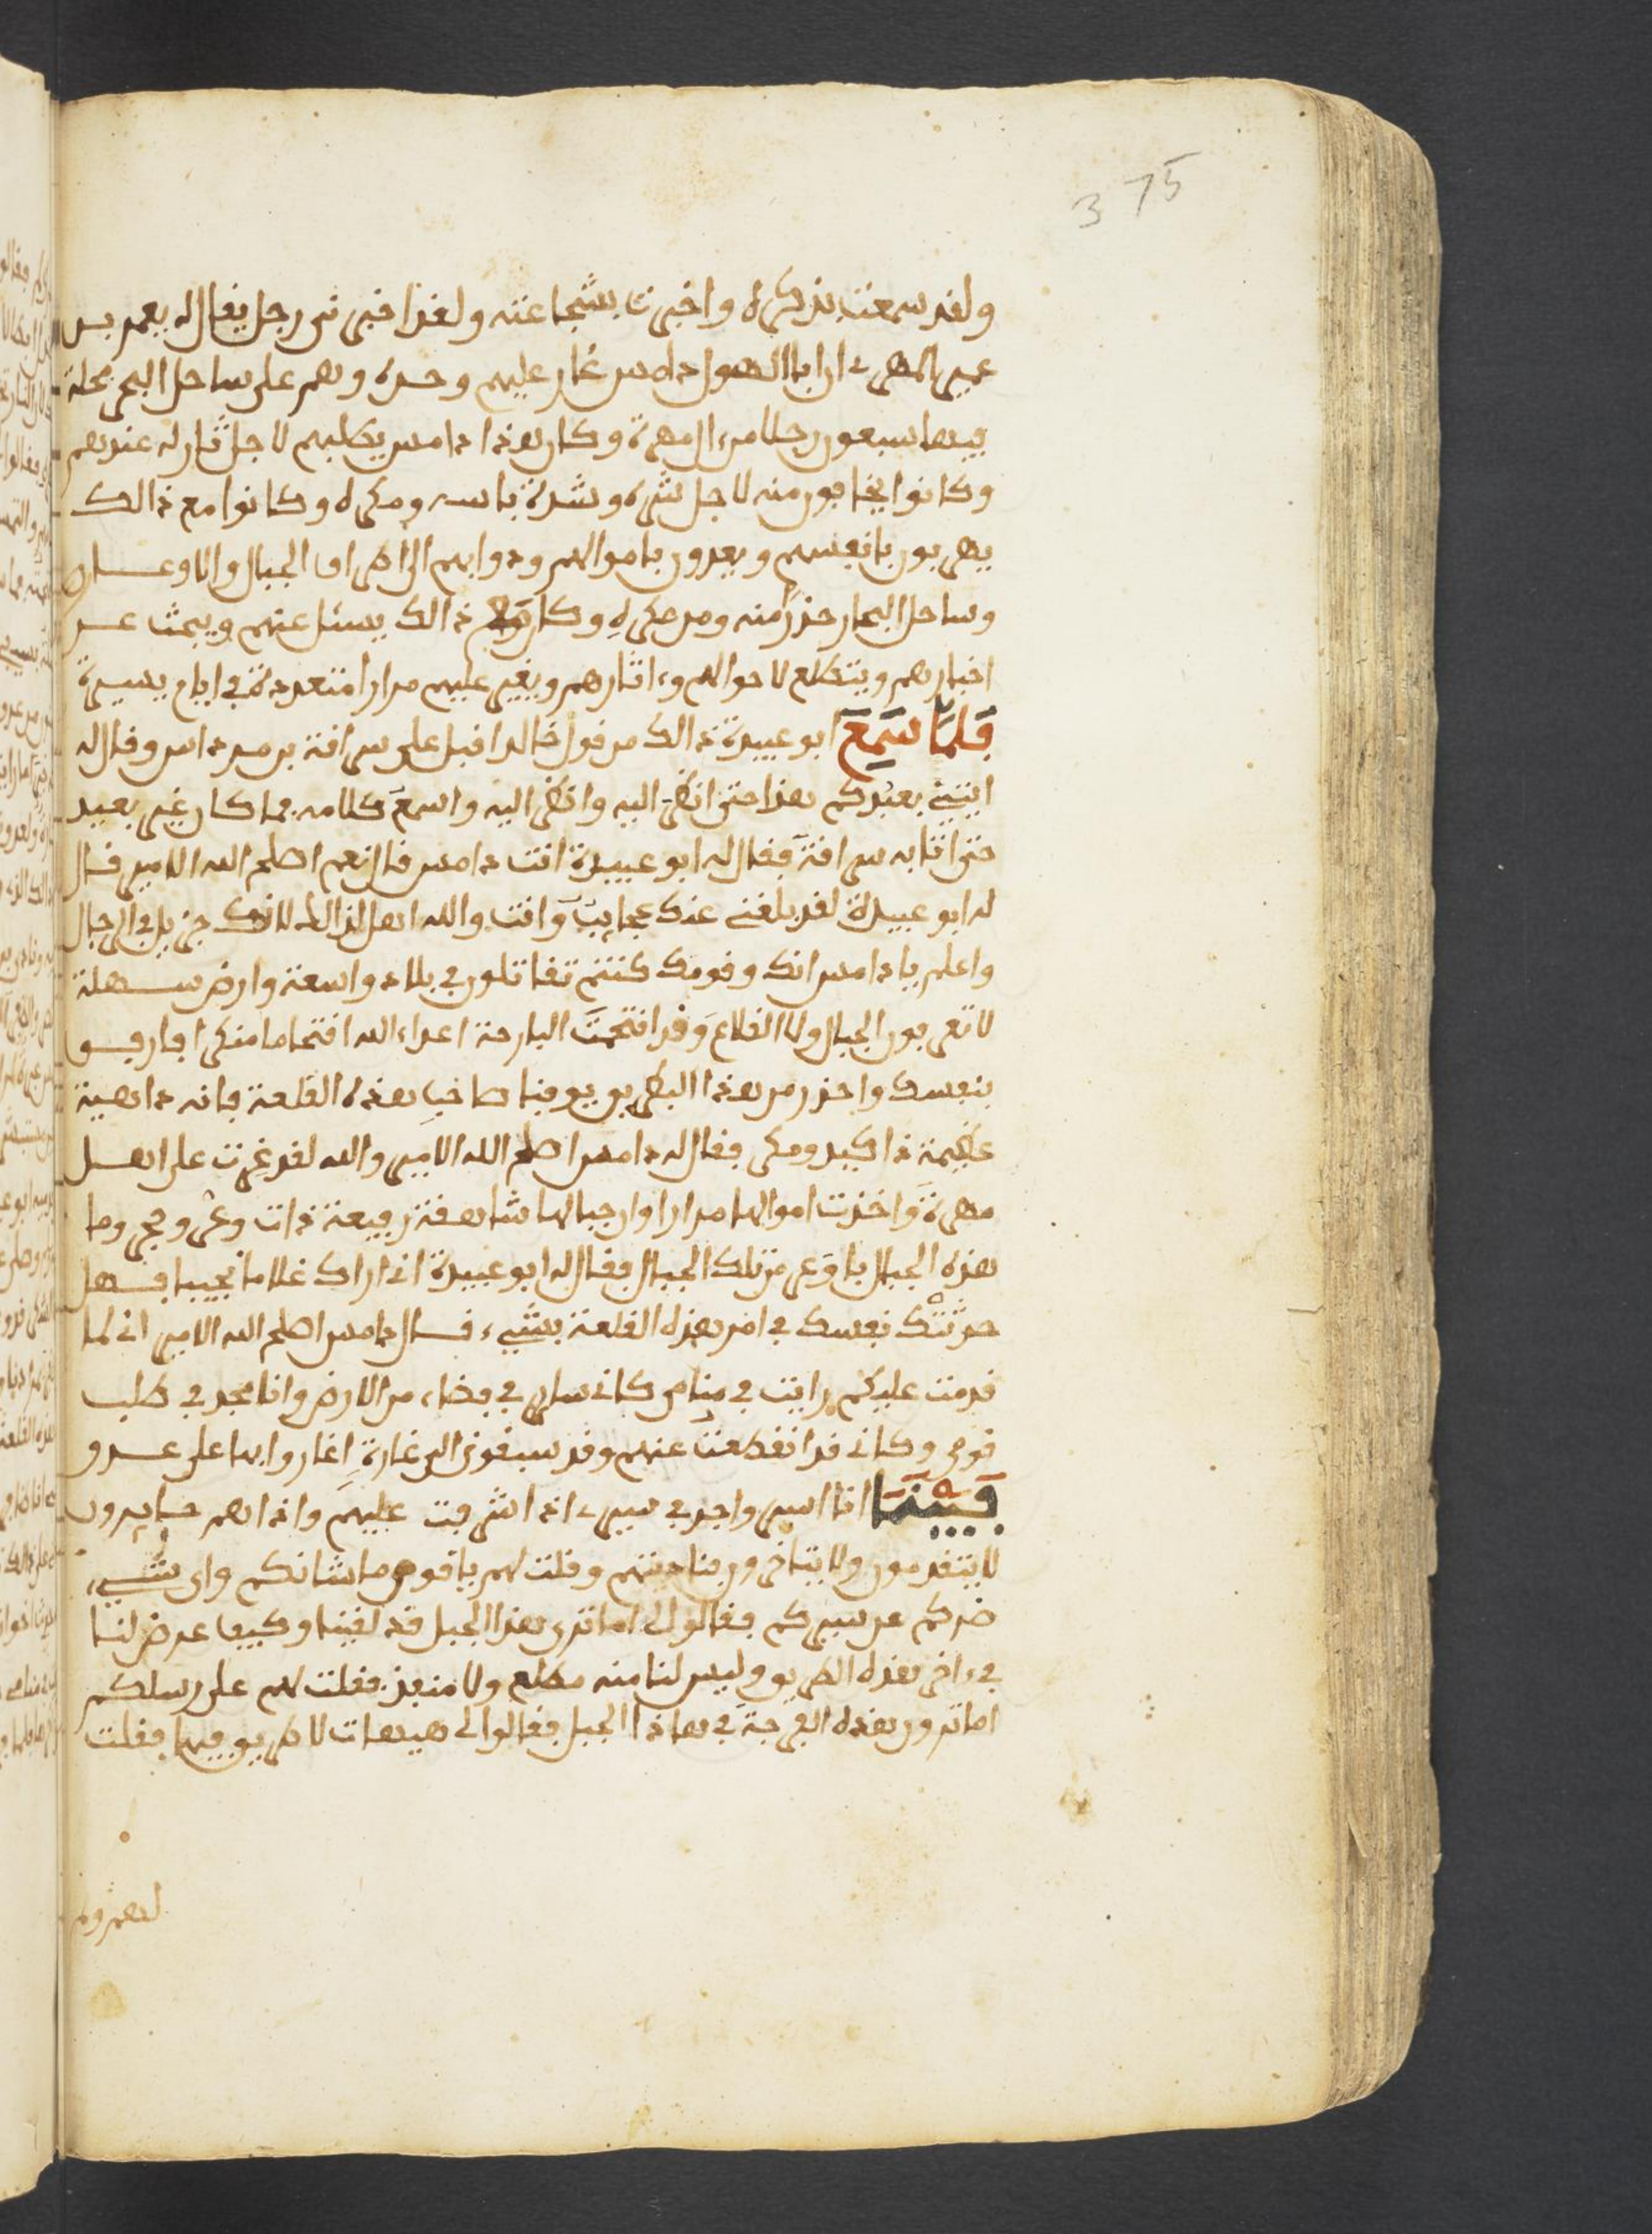 375
ولقد سمعت بذكره واخبرت بشجاعته ولقد اخبرني رجل يقال له يعمر بن
عميرالمهري ان ابا الهول دامس غار عليهم وحده وهم على ساحل البحر بحلة
فيها سبعون رجلا من ال مهرة وكان هذا دامس يطلبهم لاجل ثار له عندهم
وكانوا يخافون منه لاجل شره وشدة باسه ومكره وكانوا مع ذالك
يهربون بانفسهم ويعدون باموالهم ودوابهم الى اطراف الجبال والاوعار
وساحل البحار حذرا منه ومن مكره وكان مع ذالك يسئل عنهم ويبحث عن
اخبارهم ويتطلع لاحوالهم وءاثارهم ويغير عليهم مرارا متعددة في ايام يسيرة
فلما سمع ابو عبيدة ذالك من قول خالد اقبل على سراقة بن مرداس وقال له
ايتيني بعبدكم هذا حتى انظر اليه وانظر اليه واسمع كلامه فما كان غير بعيد
حتى اتا به سراقة فقال له ابو عبيدة انت دامس قال نعم اصلح الله الامير قال
له ابو عبيدة لقد بلغني عنك عجايب وانت والله اهل لذالك لانك جزيل في الرجال
واعلم يا دامس انك وقومك كنتم تقاتلون في بلاد واسعة وارض سهلة
لا تعرفون الجبال ولا القلاع وقد افتحمت البارحة اعداء الله افتحاما منكرا فارفق
بنفسك واحذر من هذا البطريق يوقنا صاحب هذه القلعة فانه داهية
عظيمة ذا كيد ومكر فقال له دامس اصلح الله الامير والله لقد غرت على اهل
مهرة واخذت اموالها مرارا وان جبالها شاهقة رفيعة ذات وعر وحجر وما
هذه الجبال باوعر من تلك الجبال فقال له ابو عبيدة اني اراك غلاما نجيبا فهل
حدثتك نفسك في امر هذه القلعة بشيء قال دامس اصلح الله الامير اني لما
قدمت عليكم رايت في منامي كاني ساير في فضاء من الارض وانا مجد في طلب
قومي وكاني قد انقطعت عنهم وقد سبقوني الى غارة اغاروا بها على عدو
فبينما انا اسير واجد في سيري اذ اشرفت عليهم واذا هم حايرون
لا يتقدمون ولا يتاخرون فناديتهم وقلت لهم يا قوم ما شانكم واي شيء
ضركم عن سيركم فقالوا لي اما ترى هذا الجبل قد لقينا وكيف عرض لنا
في ءاخر هذه الطريق وليس لنا منه مطلع ولا منفذ فقلت لهم على رسلكم
اما ترون هذه الفرجة في هاذا الجبل فقالوا لي هيهات لا طريق فيها فقلت
لهم ولم